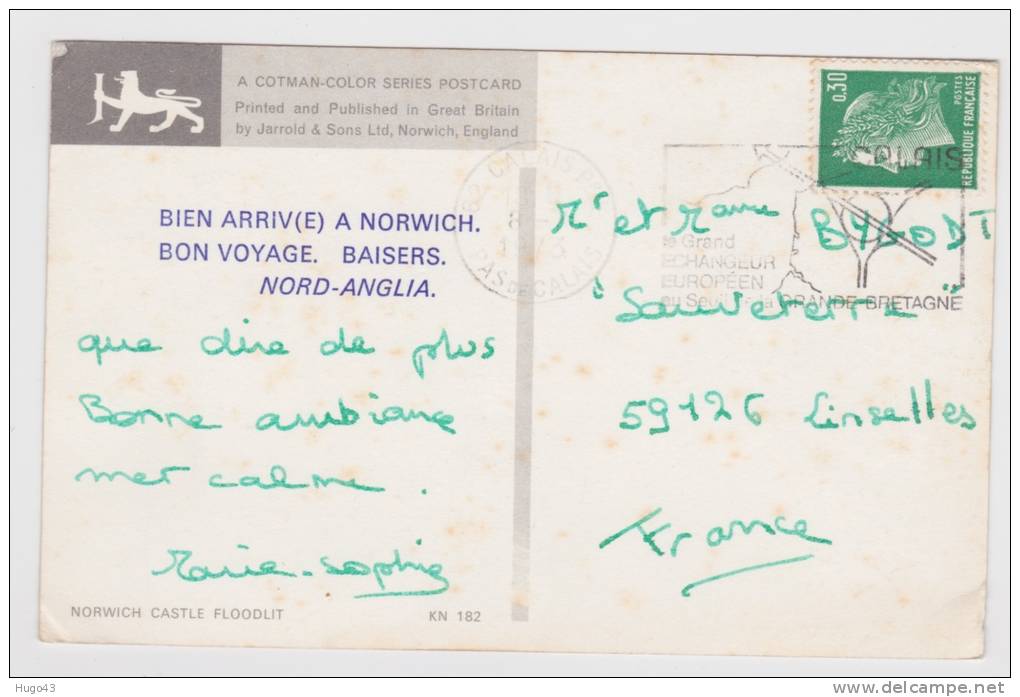 A COTMAN-COLOR SERIES POSTCARD
Printed and Published in Great Britain
by Jarrold & Sons Ltd, Norwich, England
BIEN ARRIV(E) A NORWICH.
BON VOYAGE. BAISERS.
NORD-ANGLIA.
que dire de plus
Bonne ambiance
mer calme.
Marie-Sophie
NORWICH CASTLE FLOODLIT KN 182
0,30
POSTES
REPUBLIQUE FRANÇAISE
62 CALAIS P.
PAS DE CALAIS
CALAIS
le Grand
ECHANGEUR
EUROPÉEN
au Seuil de la GRANDE-BRETAGNE
Mr et Mame BYGODT
"Sauveterre"
59126 Linselles
France
Hugo43
delcampe.net